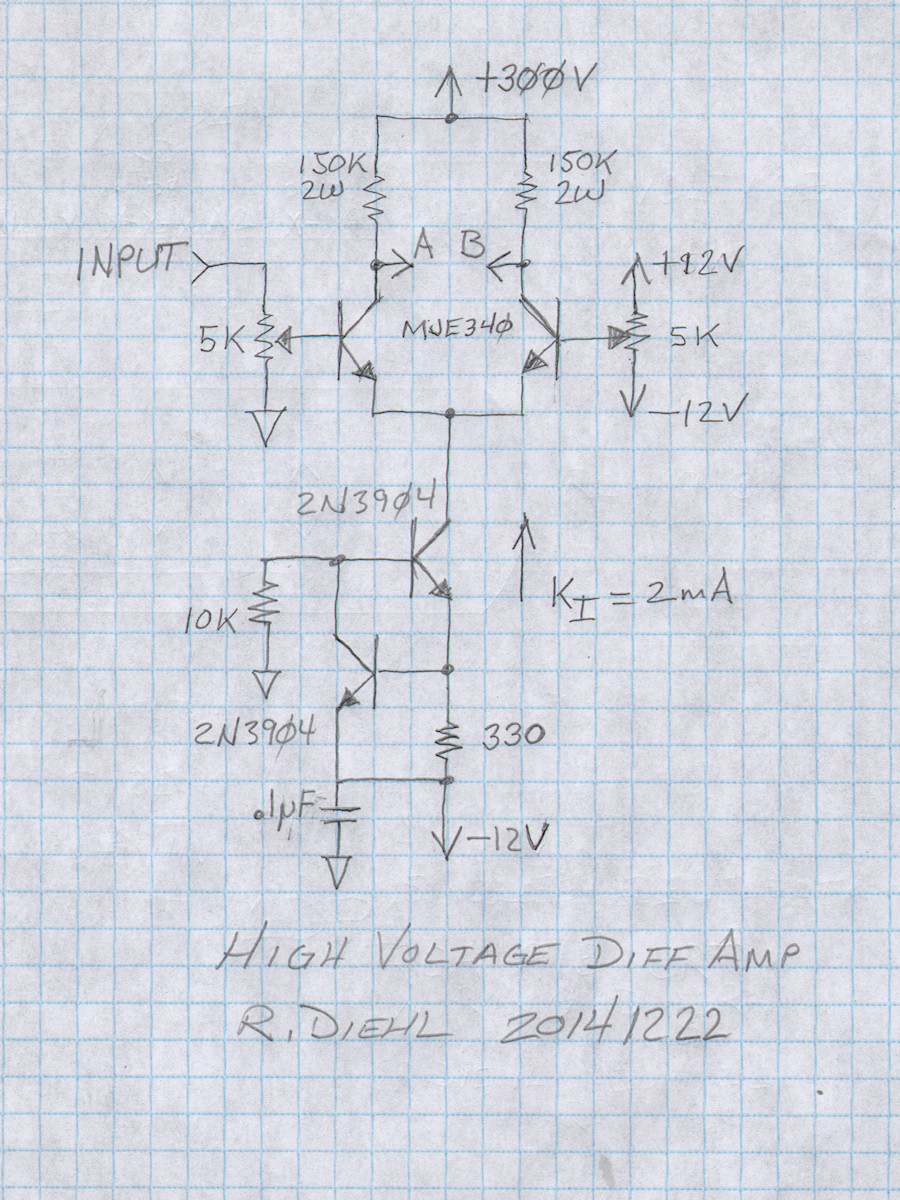 +3ØØV
150K 2W
150K 2W
INPUT
A B
+12V
5K
MJE34Ø
5K
-12V
2N39Ø4
K_I = 2mA
10K
2N39Ø4
330
.1µF
-12V
HIGH VOLTAGE DIFF AMP
R. DIEHL 20141222